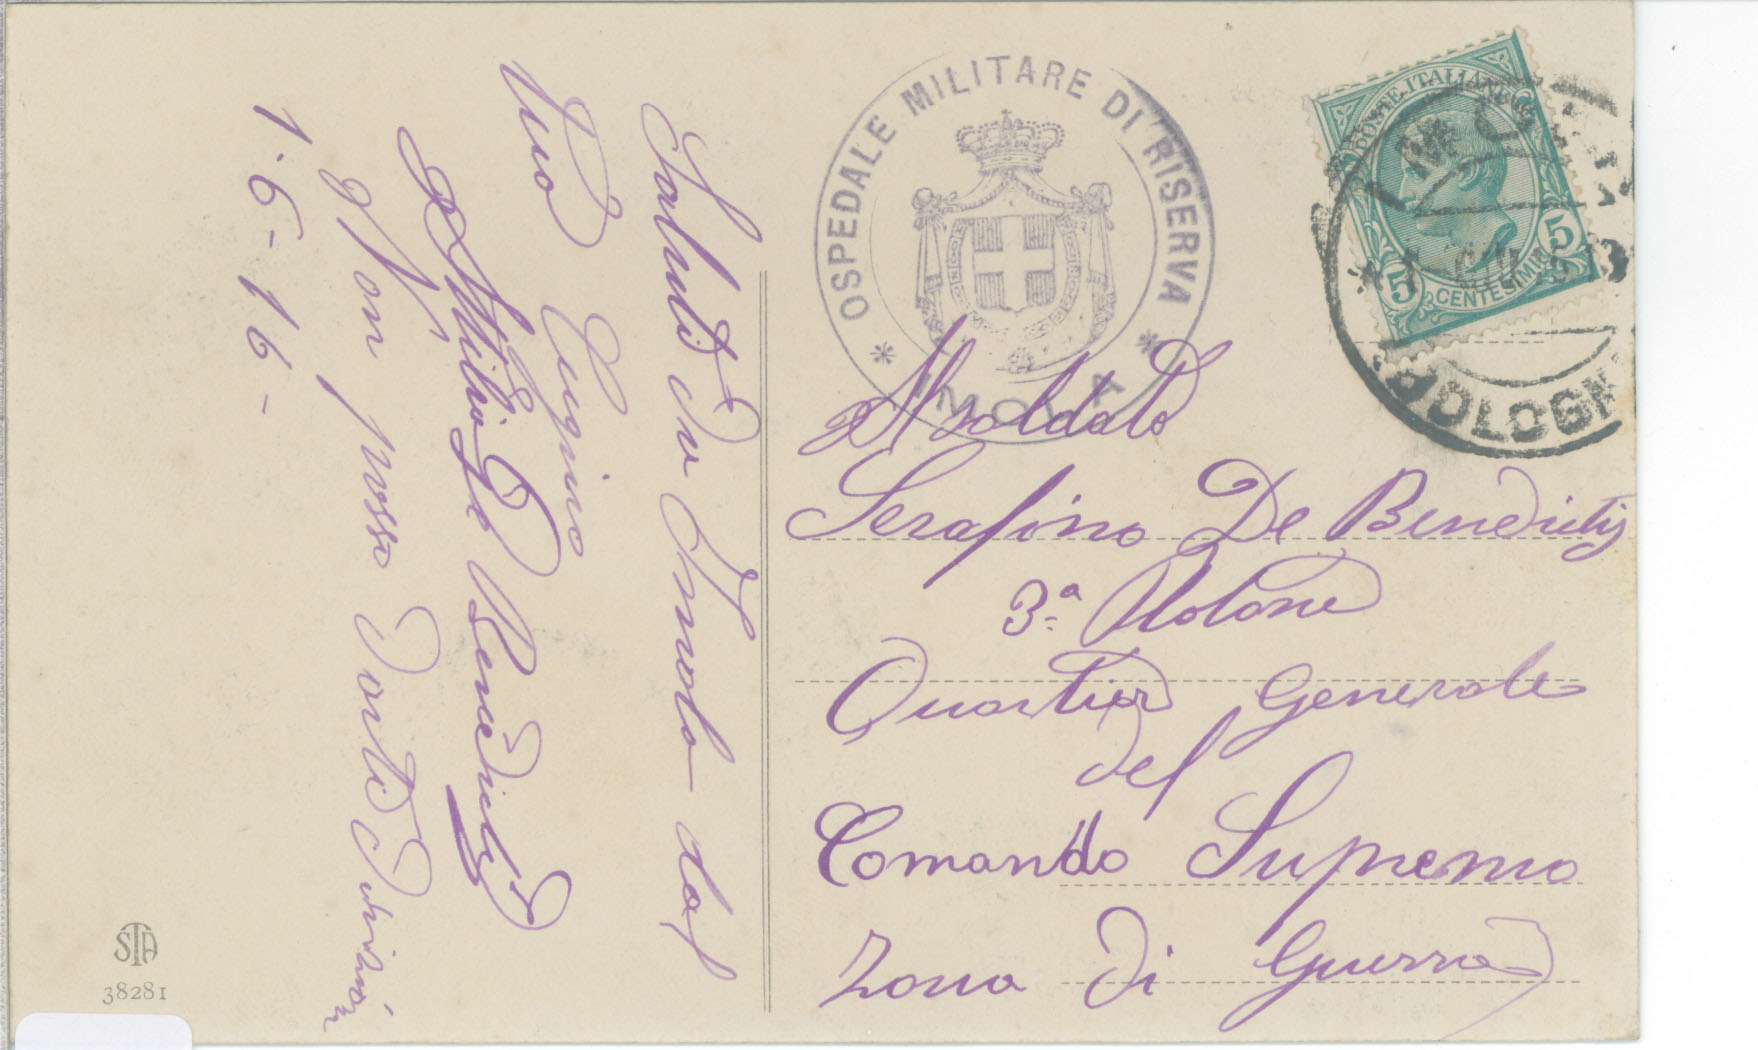 Saluti da Imola dal
tuo Cugino
Attilio De Benedictis
Non posso darti
1-6-16-
STA
38281
OSPEDALE MILITARE DI RISERVA
* IMOLA *
POSTE ITALIANE
5 CENTESIMI 5
IMOLA
BOLOGNA
Al soldato
Serafino De Benedictis
3ª
Quartier Generale
del
Comando Supremo
Zona di Guerra